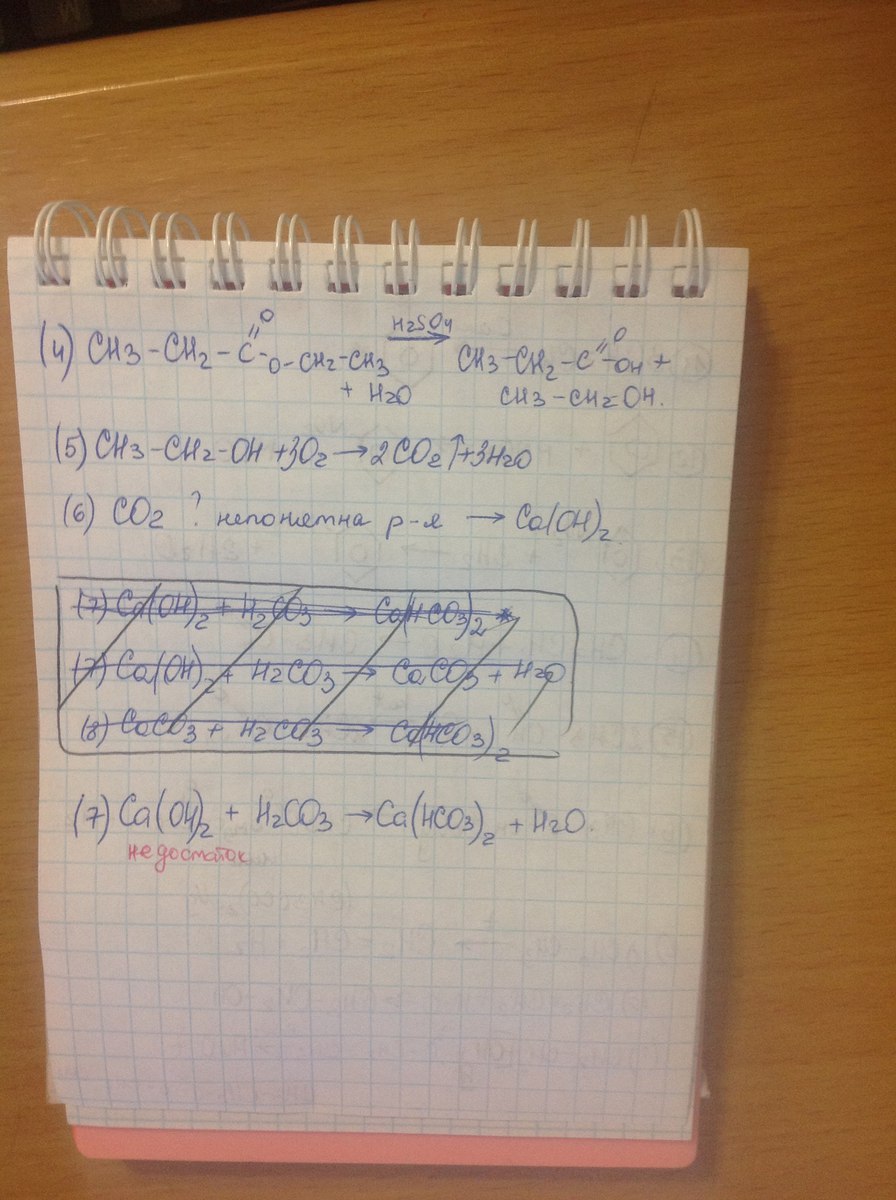 (4) CH3-CH2-C=O-O-CH2-CH3 + H2O H2SO4→ CH3-CH2-C=O-OH +
CH3-CH2-OH.
(5) CH3-CH2-OH +3O2→2CO2↑+3H2O
(6) CO2 ? непонятна р-я → Ca(OH)2.
(7) Ca(OH)2 + H2CO3 → Ca(HCO3)2
(7) Ca(OH)2 + H2CO3 → CaCO3 + H2O
(8) CaCO3 + H2CO3 → Ca(HCO3)2
(7) Ca(OH)2 + H2CO3 →Ca(HCO3)2 + H2O.
недостаток